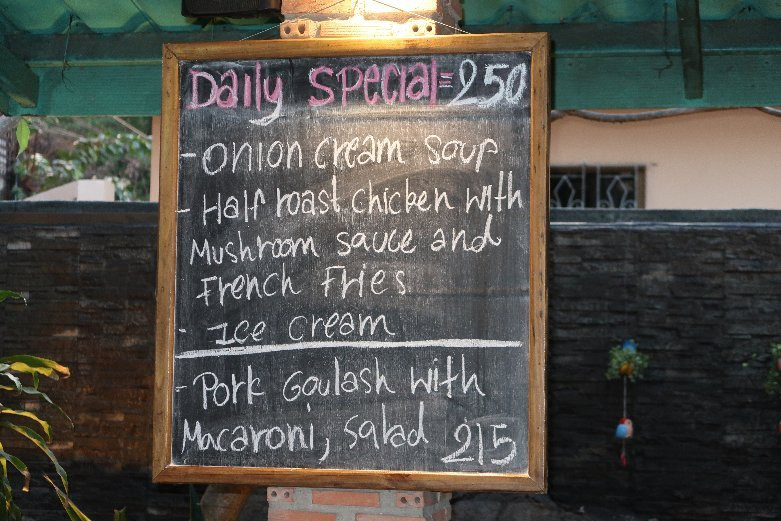 Daily Special=250
- Onion cream soup
- Half roast chicken with
Mushroom sauce and
French Fries
- Ice cream
- Pork Goulash with
Macaroni, salad 215